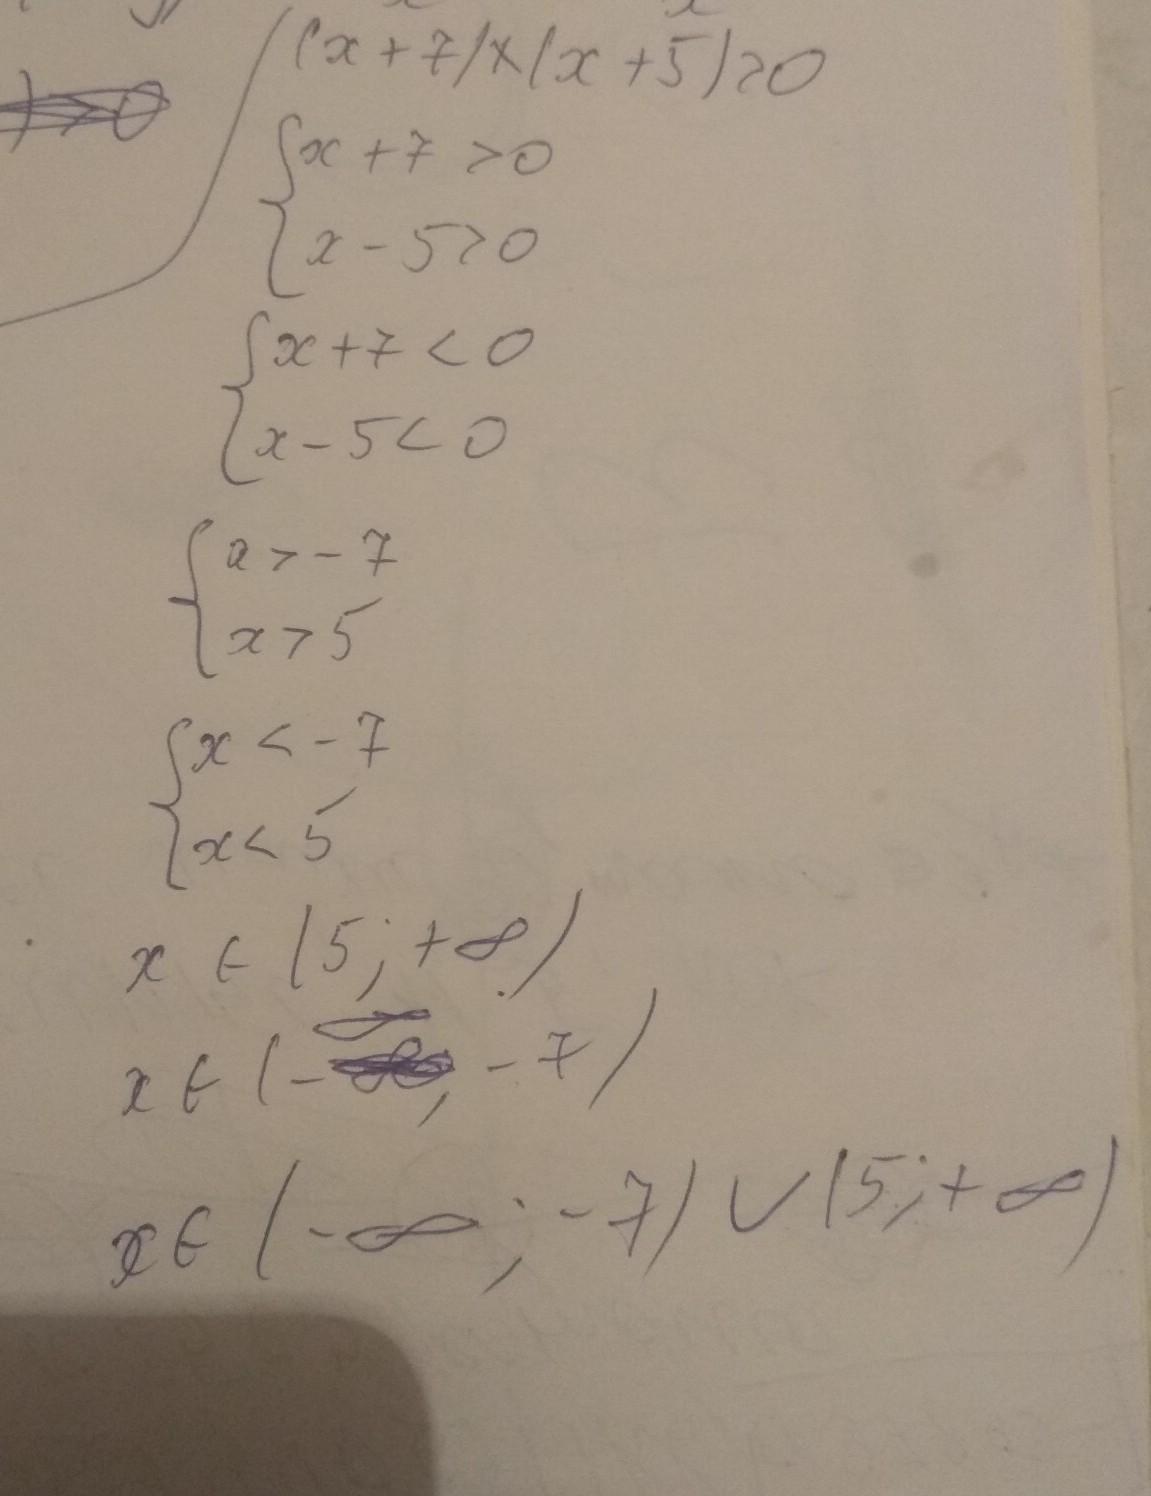 (x+7)×(x+5)>0
)>0
{x+7>0
x-5>0
{x+7<0
x-5<0
{a>-7
x>5
{x<-7
x<5
x∈(5;+∞)
x∈(-∞;-7)
x∈(-∞;-7)∪(5;+∞)